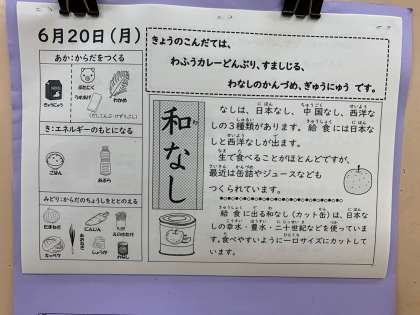 6月20日(月)
あか:からだをつくる
ぎゅうにゅう
ぶたにく
わかめ
き:エネルギーのもとになる
ごはん
あぶら
みどり:からだのちょうしをととのえる
たまねぎ
にんじん
えのきたけ
キャベツ
しょうが
わなし
きょうのこんだては、
わふうカレーどんぶり、すましじる、
わなしのかんづめ、ぎゅうにゅう です。
和なし
なしは、日本なし、中国なし、西洋な
しの3種類があります。給食には日本な
しと西洋なしが出ます。
生で食べることがほとんどですが、
最近は缶詰やジュースなども
つくられています。
給食に出る和なし(カット缶)は、日本な
しの幸水・豊水・二十世紀などを使っていま
す。食べやすいように一口サイズにカットして
います。